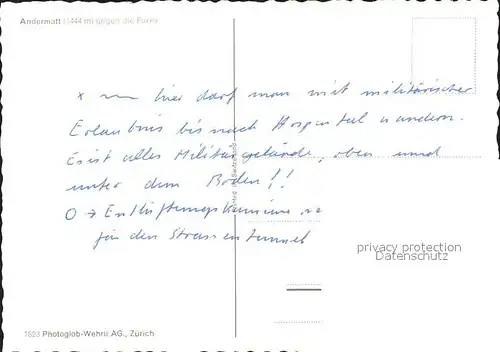 Andermatt (1444 m) gegen die Furka
x — hier darf man mit militärischer
Erlaubnis bis nach Hospental wandern.
Es ist alles Militärgelände, oben und
unter dem Boden!!
O → Entlüftungskamine
für den Strassentunnel
privacy protection
Datenschutz
1523 Photoglob-Wehrli AG., Zürich